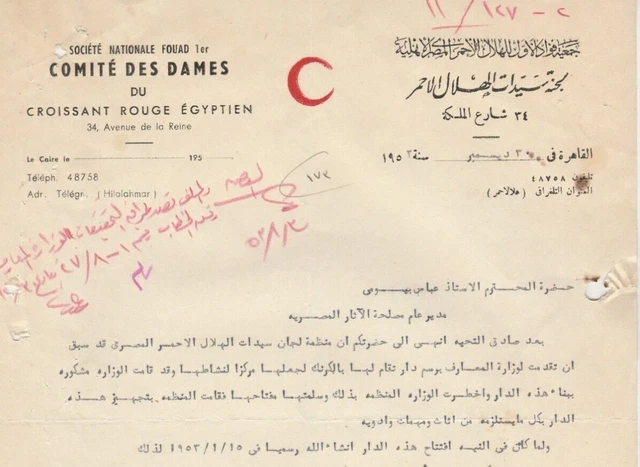 ٢ - ١٢٧ / ١١
SOCIÉTÉ NATIONALE FOUAD 1er
COMITÉ DES DAMES
DU
CROISSANT ROUGE ÉGYPTIEN
34, Avenue de la Reine
Le Caire le 195
Téléph. 48758
Adr. Télégr. (Hilalahmar)
جمعية فؤاد الأول للهلال الأحمر المصرى الأهلية
لجنة سيدات الهلال الأحمر
٣٤ شارع الملكة
القاهرة فى ٣٠ ديسمبر سنة ١٩٥٢
تليفون ٤٨٧٥٨
العنوان التلغرافى (هلالاحمر)
١٧٣
حضرة المحترم الاستاذ عباس بيومى
مدير عام مصلحة الآثار المصريه
بعد صادق التحيه انهى الى حضرتكم ان منظمة لجان سيدات الهلال الاحمر المصرى قد سبق
ان تقدمت لوزارة المعارف برسم دار تقام لها بالكرنك لجعلها مركزا لنشاطها وقد قامت الوزاره مشكوره
ببناء هذه الدار واخطرت الوزاره المنظمه بذلك وسلمتها مفتاحها فقامت المنظمه بتجهيز هذه
الدار بكل مايستلزمه من اثاث ومهمات وادويه
ولما كان فى النيه افتتاح هذه الدار انشاءالله رسميا فى ١٩٥٣/١/١٥ لذلك